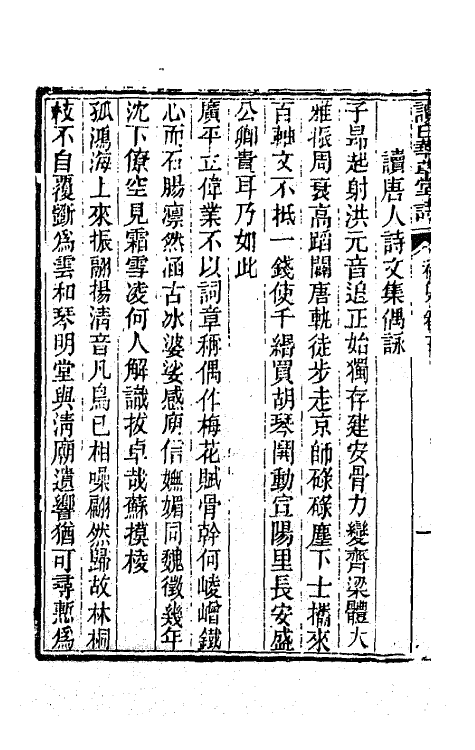 讀唐人詩文集偶詠
子昻起射洪元音追正始獨存建安骨力變齊梁體大
雅振周衰高蹈闢唐軌徒步走京師碌碌塵下士攜來
百軸文不抵一錢使千緡買胡琴鬨動宣陽里長安盛
公卿貴耳乃如此
廣平立偉業不以詞章稱偶作梅花賦骨幹何崚嶒鐵
心而石腸凛然涵古冰婆娑感廟信嫵媚同魏徵幾年
沈下僚空見霜雪凌何人解識拔卓哉蘇摸棱
孤鴻海上來振翮揚清音凡鳥已相噪翩然歸故林桐
枝不自覆斷爲雲和琴明堂與淸廟遺響猶可尋慙爲